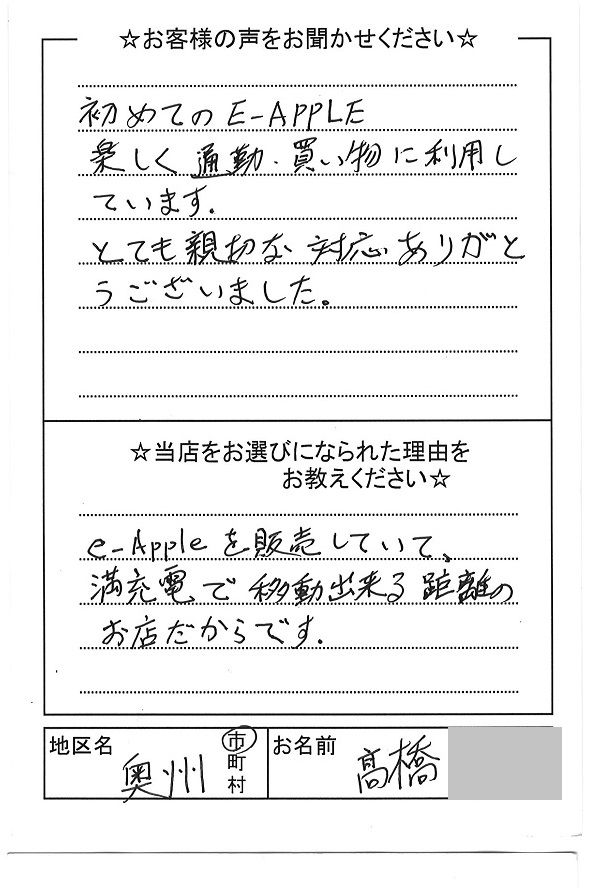 ☆お客様の声をお聞かせください☆
初めてのE-APPLE
楽しく通勤、買い物に利用し
ています.
とても親切な対応ありがと
うございました。
☆当店をお選びになられた理由を
お教えください☆
e-Appleを販売していて、
満充電で移動出来る距離の
お店だからです.
地区名 奥州 市町村 お名前 髙橋